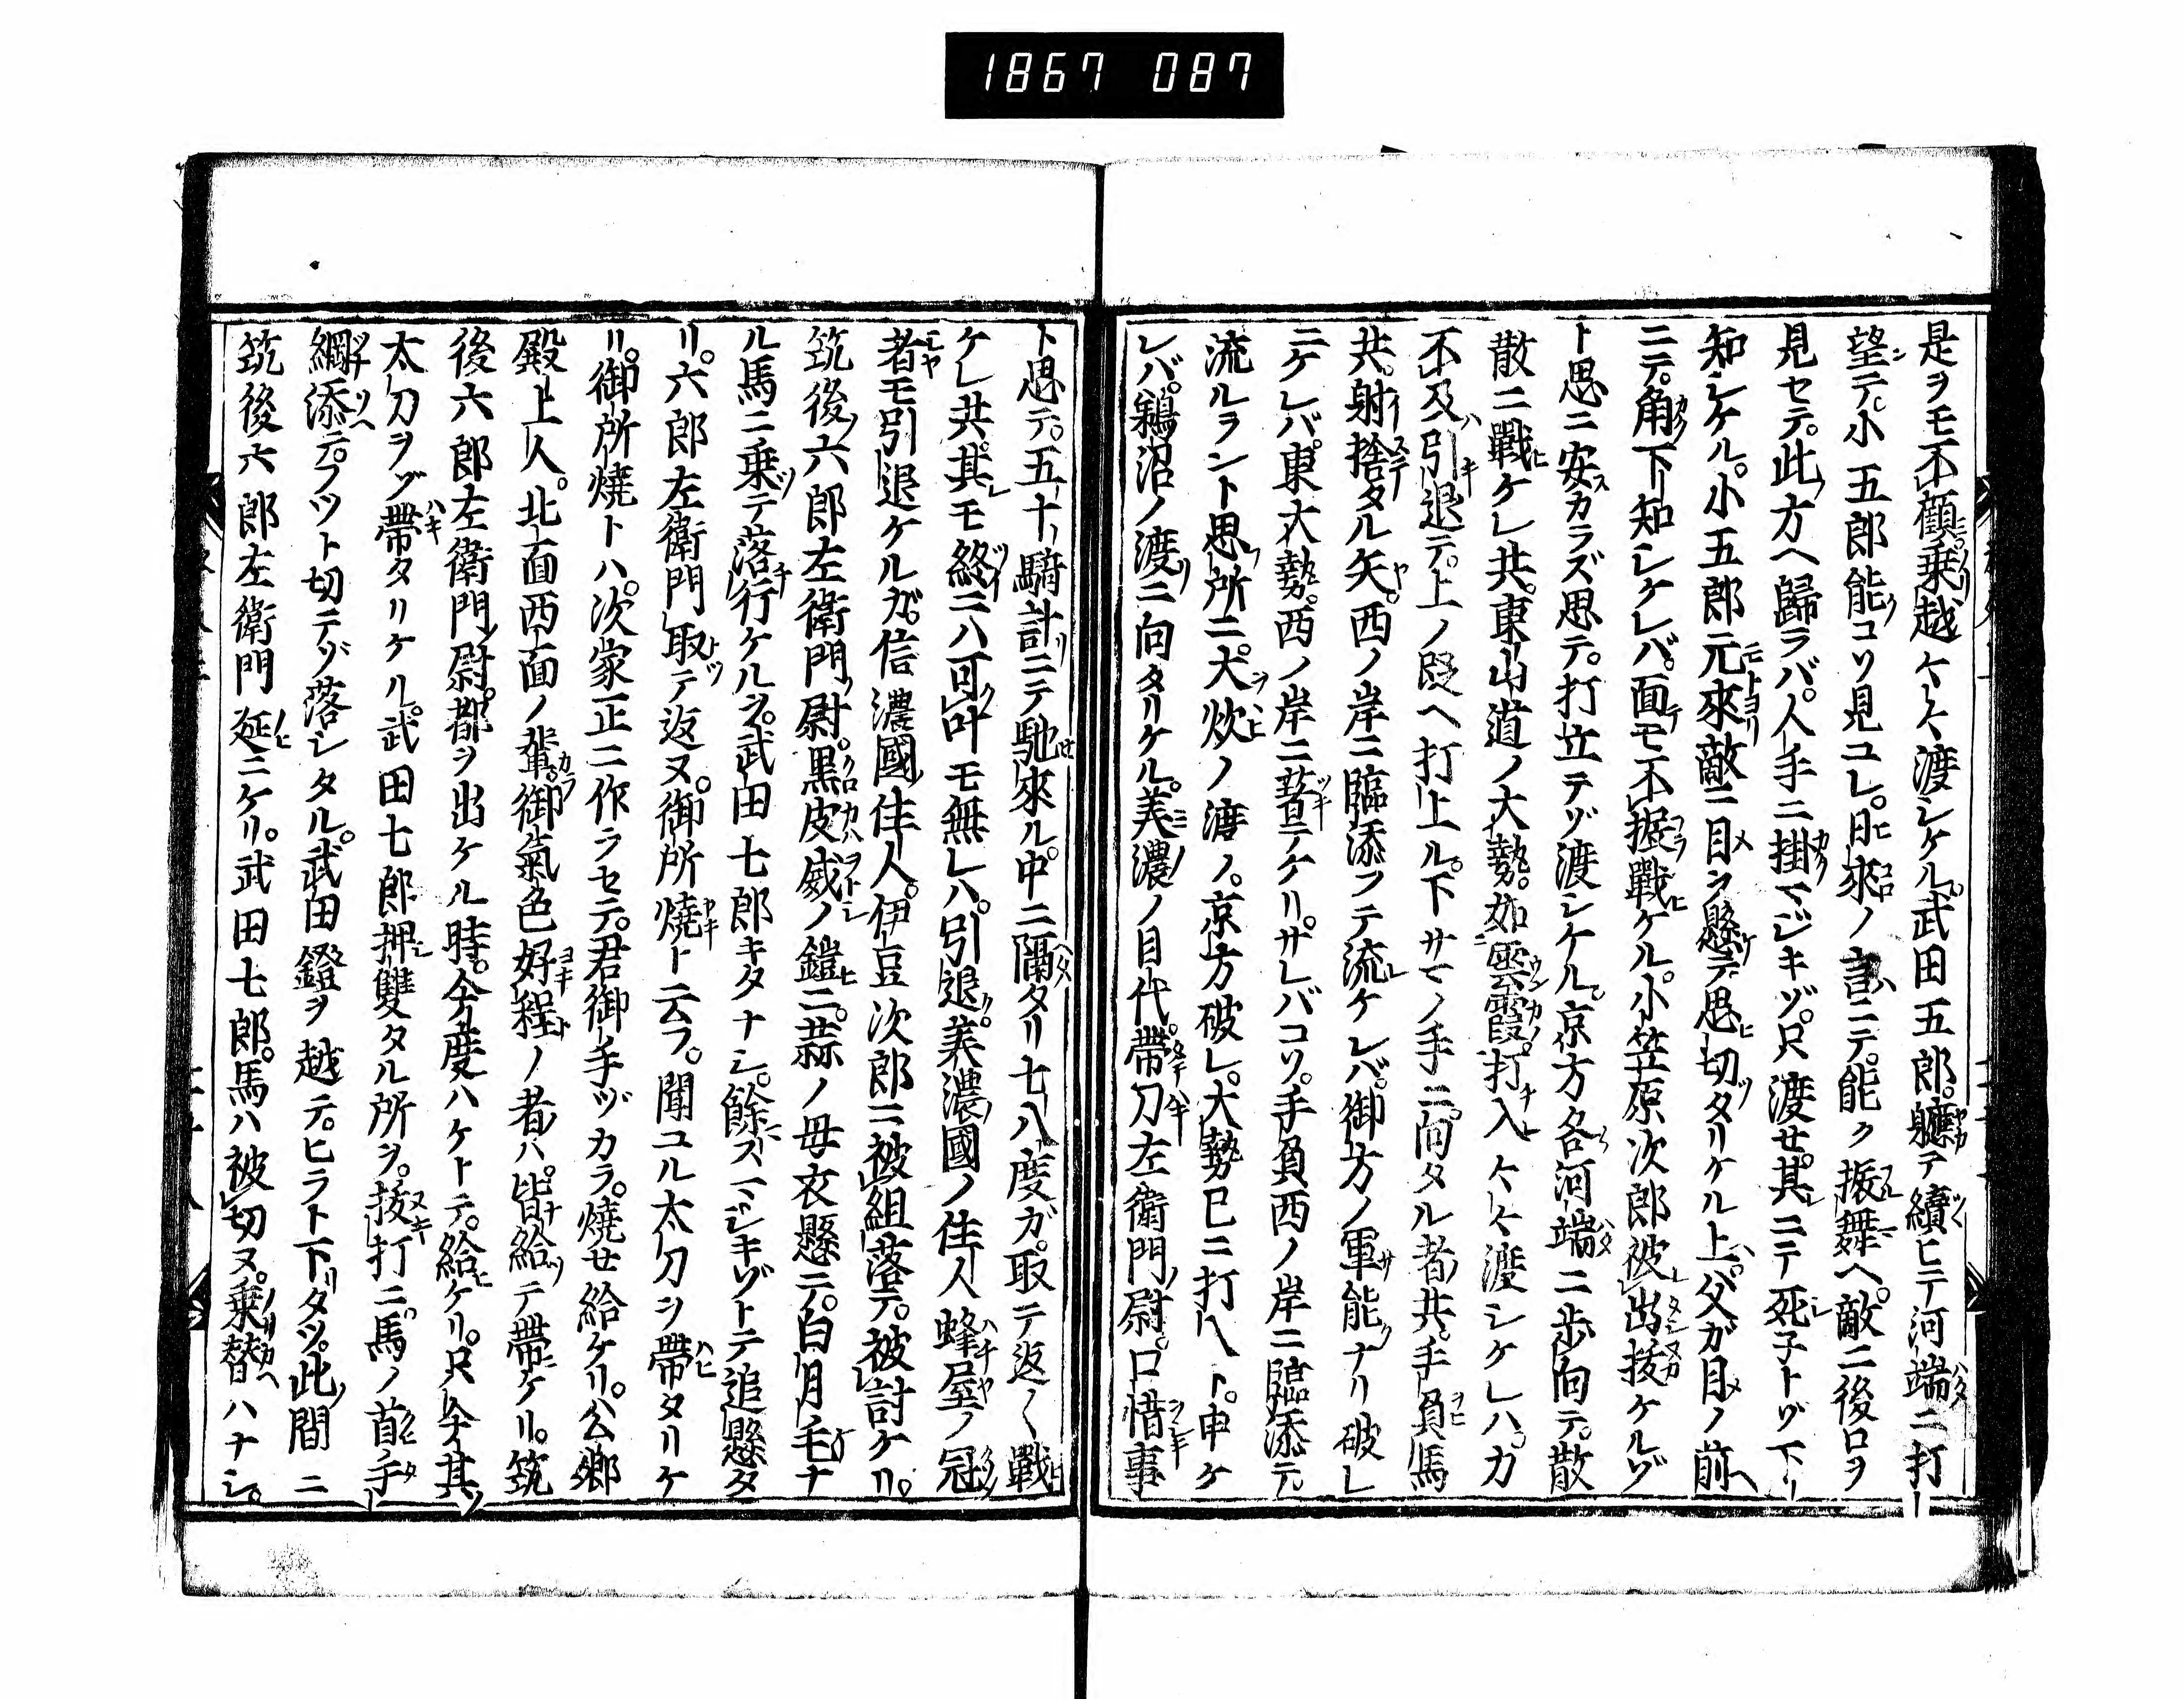 1867 087
是ヲモ不顧乗越ケレ〻渡シケル。武田五郎。軈テ續ヒテ河端ニ打
望テ。小五郎能コソ見ユレ。日來ノ言ニテ。能ク振舞ヘ。敵ニ後ロヲ
見セテ。此方ヘ歸ラバ。人手ニ掛マジキゾ。只渡セ。其ニテ死子トゾ下
知シケル。小五郎元來敵ニ目ヲ懸テ思切タリケル上。父ガ目ノ前
ニテ。角下知シケレバ。面モ不振戰ケル。小笠原次郎被出抜ケルゾ
ト思ニ安カラズ思テ。打立テゾ渡シケル。京方各河端ニ歩向テ。散
散ニ戰ケレ共。東山道ノ大勢。如雲霞打入〻〻渡シケレハ。カ
不及引退テ。上ノ段ヘ打上ル。下サマノ手ニ向タル者共。手負馬
共。射捨タル矢。西ノ岸ニ臨添フテ流ケレバ。御方ノ軍能ナリ破レ
ニケレバ。東大勢。西ノ岸ニ著テケリ。サレバコソ。手負西ノ岸ニ臨添テ
流ルラント思所ニ。大炊ノ渡ノ。京方破レ。大勢已ニ打入ト。申ケ
レバ。鵜沼ノ渡ニ向タリケル。美濃ノ目代。帶刀左衛門尉。口惜事
ト思テ。五十騎計ニテ馳來ル中ニ隔タリ七八度ガ。取テ返〱戰
ケレ共。其モ終ニハ可叶モ無レハ。引退。美濃國ノ住人蜂屋ノ冠
者モ引退ケルガ。信濃國住人。伊豆次郎ニ被組落テ。被討ケリ。
筑後六郎左衛門尉。黒皮威ノ鎧ニ。蒜ノ母衣懸テ。白月毛ナ
ル馬ニ乗テ落行ケルヲ。武田七郎キタナシ。餘スマジキゾトテ追懸タ
リ。六郎左衛門取テ返ヌ。御所焼ト云フ。聞コル太刀ヲ帶タリケ
リ。御所焼トハ。次家正ニ作ラセテ。君御手ヅカラ。焼セ給ケリ。公卿
殿上人。北面西面ノ輩。御氣色好程ノ者ハ。皆給テ帶ケリ。筑
後六郎左衛門尉。都ヲ出ケル時。今度ハケトテ。給ケリ。只今其
太刀ヲゾ帶タリケル。武田七郎押雙タル所ヲ。抜打ニ馬ノ首手
綱添テ。フツト切テゾ落シタル。武田鐙ヲ越テ。ヒラト下タツ。此間ニ
筑後六郎左衛門延ニケリ。武田七郎。馬ハ被切ヌ。乗替ハナシ。